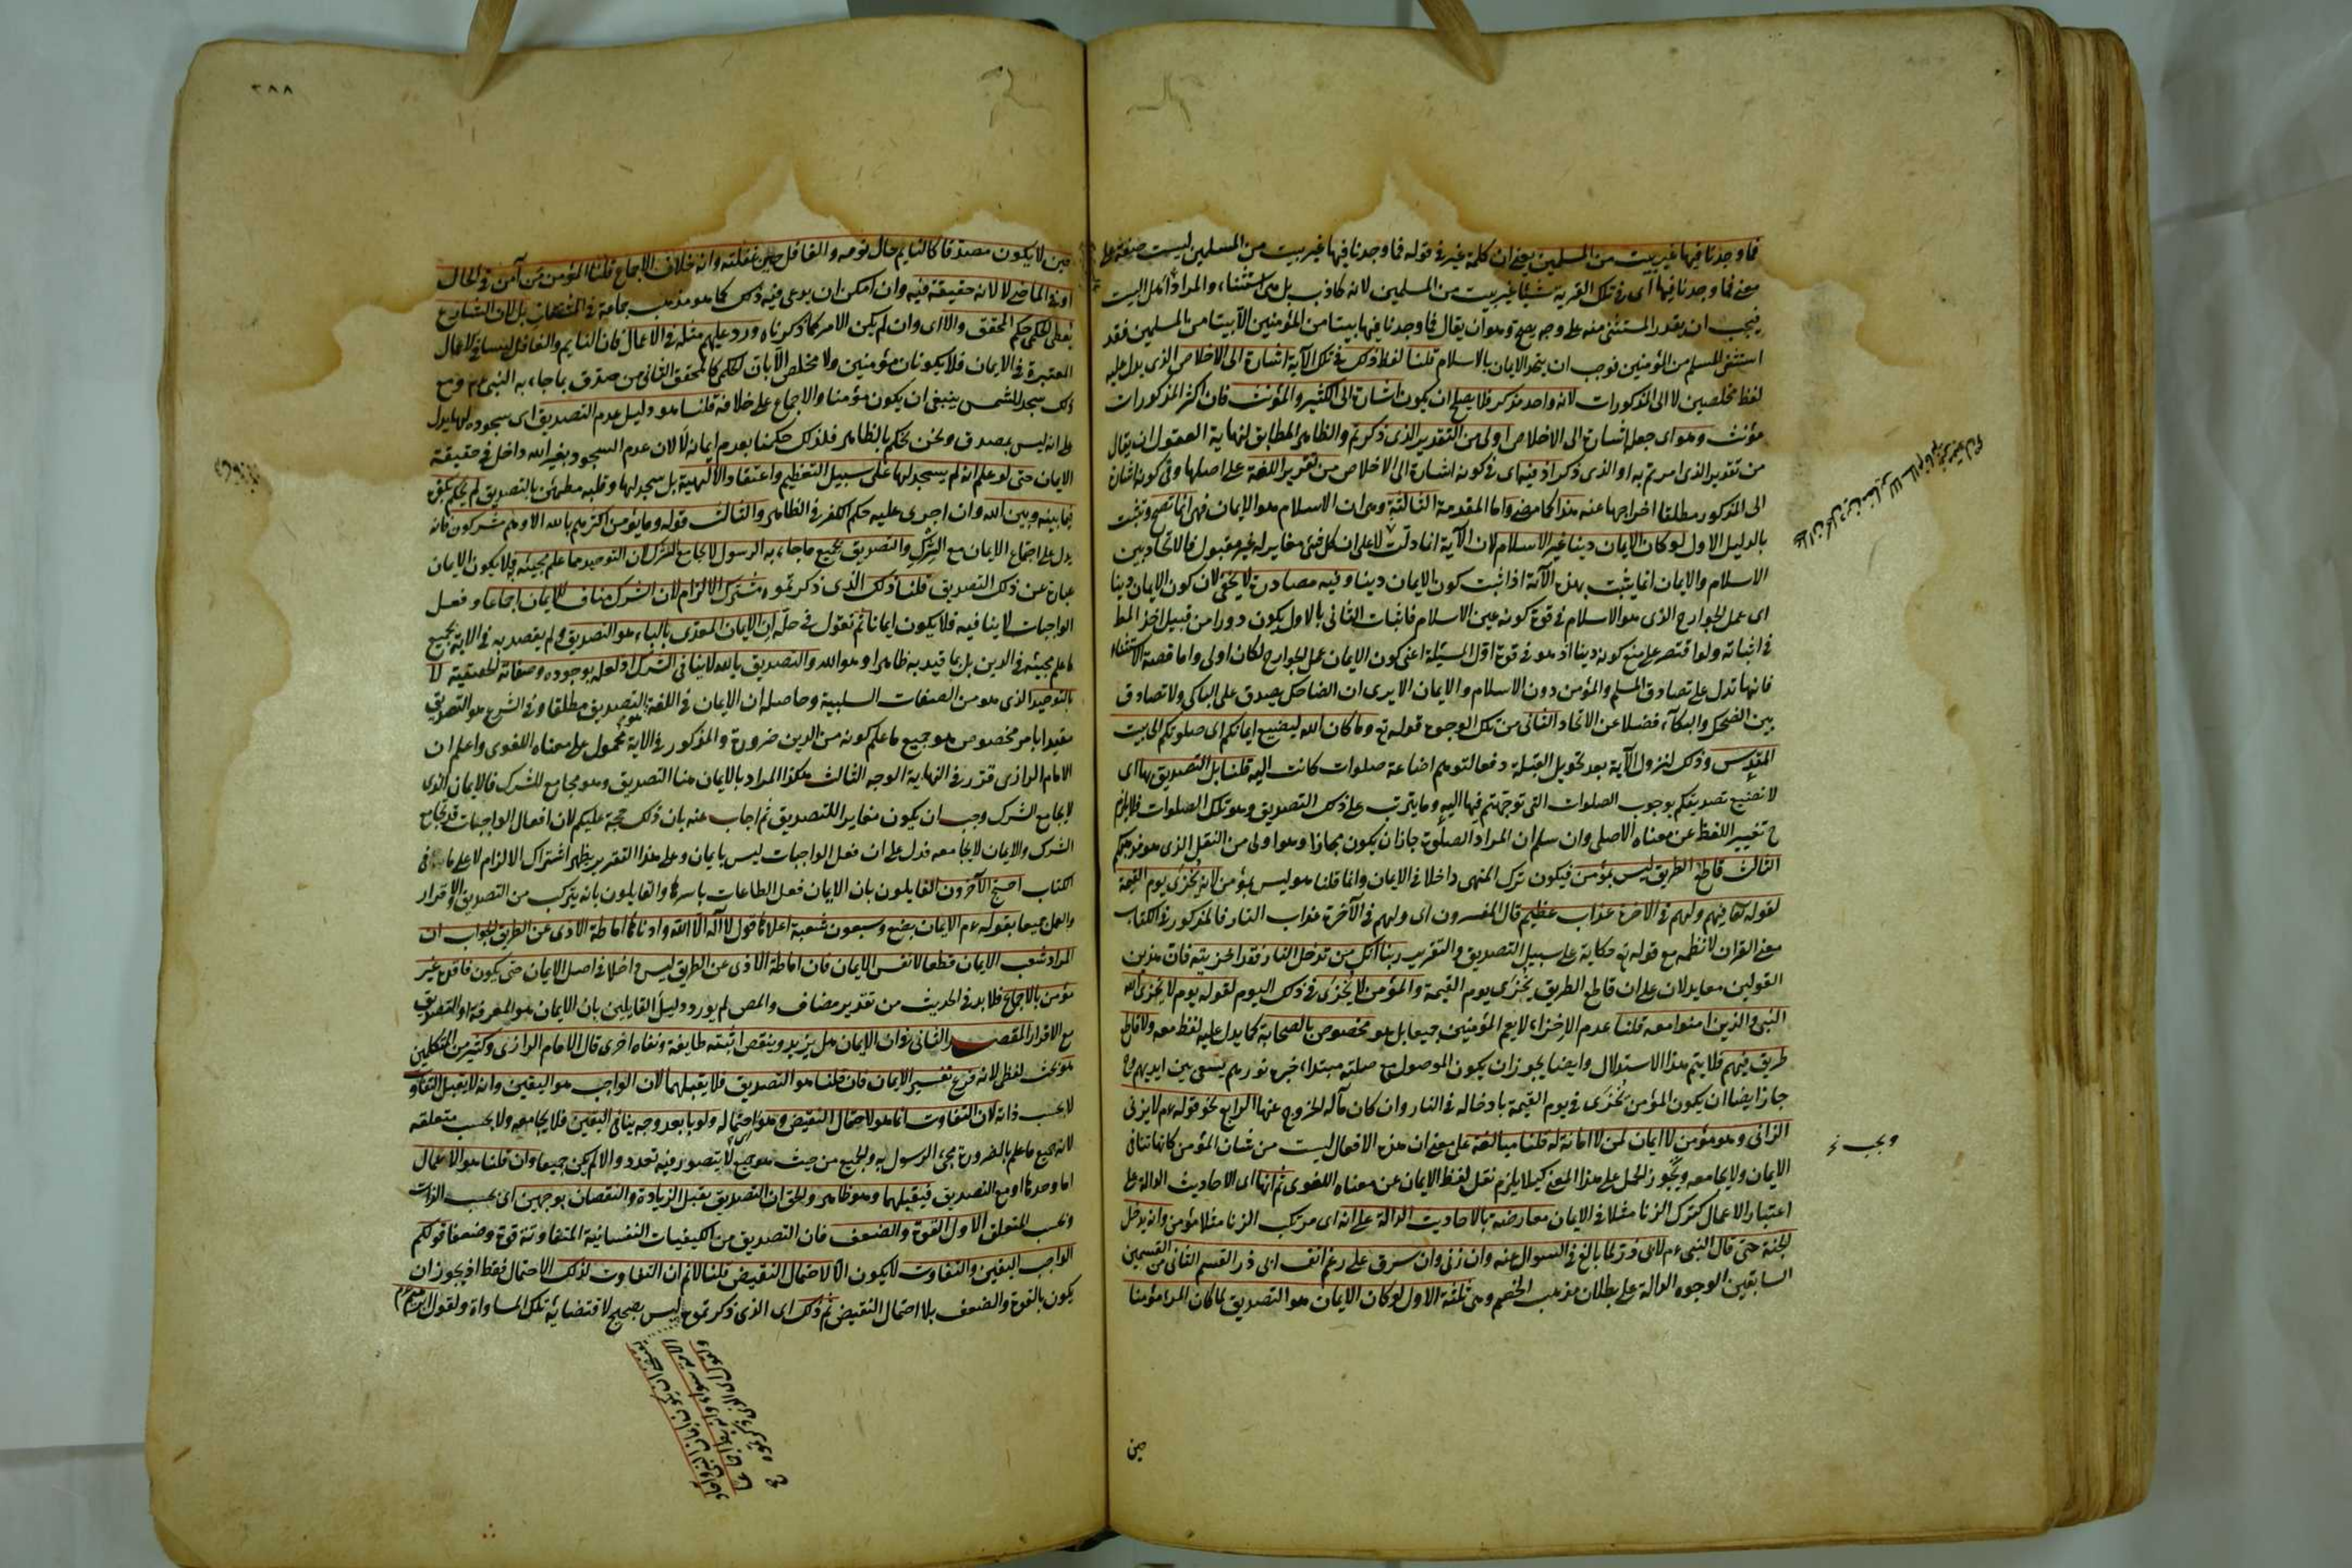 فما وجدنا فيها غير بيت من المسلمين يعني ان كلمة غير في قوله فما وجدنا فيها غير بيت من المسلمين ليست صفة على
معنى فما وجدنا فيها اى في تلك القرية شيئا غير بيت من المسلمين لانه كاذب بل هى استثناء والمراد اهل البيت
فيجب ان يقدر المستثنى منه على وجه يصح وهو ان يقال فما وجدنا فيها بيتا من المؤمنين الا بيتا من المسلمين فقد
استثنى المسلم من المؤمنين فوجب ان يتحد الايمان بالاسلام قلنا لفظ ذلك في تلك الآية اشارة الى الاخلاص الذى يدل عليه
لفظ مخلصين لا الى المذكورات لانه واحد مذكر فلا يصلح ان يكون اشارة الى الكثير والمؤنث فان اكثر المذكورات
مؤنث وهو اى جعله اشارة الى الاخلاص اولى من التقدير الذى ذكرتم والظاهر المطابق لنهاية العقول ان يقال
من تقدير الذى امرتم به او الذى ذكر اذ فيه اى في كونه اشارة الى الاخلاص من تقرير اللغة على اصلها وفي كونه اشارة
الى المذكور مطلقا اخراجها عنه هذا كما مضى واما المقدمة الثالثة وهى ان الاسلام هو الايمان فهى انما تصح وتثبت
بالدليل الاول لو كان الايمان دينا غير الاسلام لان الآية انما دلت على ان كل دين مغاير له غير مقبول فالاتحاد بين
الاسلام والايمان انما يثبت بهذه الآية اذا ثبت كون الايمان دينا وفيه مصادرة لا يخفى لان كون الايمان دينا
اى عمل الجوارح الذى هو الاسلام في قوة كونه عين الاسلام فاثبات الثانى بالاول يكون دورا من قبيل اخذ المط
في اثباته ولو اقتصر على منع كونه دينا اذ هو في قوة اول المسئلة اعنى كون الايمان عمل الجوارح لكان اولى واما قصة الاستثناء
فانها تدل على تصادق المسلم والمؤمن دون الاسلام والايمان الا يرى ان الضاحك يصدق على الباكى ولا تصادق
بين الضحك والبكاء فضلا عن الاتحاد الثانى من تلك الوجوه قوله تع وما كان الله ليضيع ايمانكم اى صلوتكم الى بيت
المقدس وذلك لنزول الآية بعد تحويل القبلة دفعا لتوهم اضاعة صلوات كانت اليه قلنا بل التصديق بها اى
لا تضيع تصديقكم بوجوب الصلوات التى توجهتم فيها اليه وما يترتب على ذلك التصديق وهو تلك الصلوات فلا يلزم
ح تغيير اللفظ عن معناه الاصلى وان سلم ان المراد الصلوة جاز ان يكون مجازا وهو اولى من النقل الذى هو مذهبكم
الثالث قاطع الطريق ليس بمؤمن فيكون ترك المنهى داخلا في الايمان وانما قلنا هو ليس بمؤمن لانه يخزى يوم القيمة
لقوله تعا فيهم ولهم في الآخرة عذاب عظيم قال المفسرون اى ولهم في الآخرة عذاب النار فالمذكور في الكتاب
معنى القرآن لا نظمه مع قوله تع حكاية على سبيل التصديق والتقرير ربنا انك من تدخل النار فقد اخزيته فان هذين
القولين معا يدلان على ان قاطع الطريق يخزى يوم القيمة والمؤمن لا يخزى في ذلك اليوم لقوله يوم لا يخزى الله
النبى والذين امنوا معه قلنا عدم الاخزاء لا يعم المؤمنين جميعا بل هو مخصوص بالصحابة كما يدل عليه لفظ معه ولا قاطع
طريق فيهم فلا يتم هذا الاستدلال وايضا يجوز ان يكون الموصول مع صلته مبتداء خبره نورهم يسعى بين ايديهم وح
جاز ايضا ان يكون المؤمن يخزى في يوم القيمة بادخاله في النار وان كان مآله الخروج عنها الرابع نحو قوله عم لا يزنى
الزانى وهو مؤمن لا ايمان لمن لا امانة له قلنا مبالغة على معنى ان هذه الافعال ليست من شان المؤمن كانها تنافى
الايمان ولا يجامعه ويجوز الحمل على هذا المعنى كيلا يلزم نقل لفظ الايمان عن معناه اللغوى ثم انها اى الاحاديث الدالة على
اعتبار الاعمال كترك الزنا مثلا في الايمان معارضة بالاحاديث الدالة على انه اى مرتكب الزنا مثلا مؤمن وانه يدخل
الجنة حتى قال النبى عم لابى ذر لما بالغ في السوال عنه وان زنى وان سرق على رغم انف ابى ذر القسم الثانى من القسمين
السابقين الوجوه الدالة على بطلان مذهب الخصم وهى ثلثة الاول لو كان الايمان هو التصديق لما كان المرء مؤمنا
ويجب نخ
حين
٣٨٨
حين لا يكون مصدقا كالنايم حال نومه والغافل حين غفلته وانه خلاف الاجماع قلنا المؤمن من آمن في الحال
او في الماضى لا لانه حقيقة فيه وان امكن ان يدعى فيه ذلك كما هو مذهب جماعة في المشتقات بل لان الشارع
يعطى الحكمى حكم المحقق والا اى وان لم يكن الامر كما ذكرناه ورد عليهم مثله في الاعمال فان النايم والغافل ليسا في الاعمال
المعتبرة في الايمان فلا يكونان مؤمنين ولا مخلص الا بان الحكمى كالمحقق الثانى من صدق بما جاء به النبى عم ومع
ذلك سجد للشمس ينبغى ان يكون مؤمنا والاجماع على خلافه قلنا هو دليل عدم التصديق اى سجوده لها يدل
على انه ليس بمصدق ونحن نحكم بالظاهر فلذلك حكمنا بعدم ايمانه لا لان عدم السجود بغير الله داخل في حقيقة
الايمان حتى لو علم انه لم يسجد لها على سبيل التعظيم واعتقاد الالهية بل سجد لها وقلبه مطمئن بالتصديق لم يحكم بكفره
فيما بينه وبين الله وان اجرى عليه حكم الكفر في الظاهر والثالث قوله وما يؤمن اكثرهم بالله الا وهم مشركون فانه
يدل على اجتماع الايمان مع الشرك والتصديق بجميع ما جاء به الرسول لا يجامع الشرك لان التوحيد مما علم مجيئه به فلا يكون الايمان
عبارة عن ذلك التصديق قلنا ذلك الذى ذكرتموه مشترك الالزام لان الشرك مناف للايمان اجماعا وفعل
الواجبات لا ينافيه فلا يكون ايمانا ثم نقول في حله ان الايمان المعدى بالباء هو التصديق ولم يقصد به في الاية بجميع
ما علم مجيئه في الدين بل بما قيد به ظاهرا وهو الله والتصديق بالله لا ينافى الشرك اذ لعله بوجوده وصفاته الحقيقية لا
بالتوحيد الذى هو من الصفات السلبية وحاصله ان الايمان في اللغة التصديق مطلقا وفي الشرع هو التصديق
مقيدا بامر مخصوص هو جميع ما علم كونه من الدين ضرورة والمذكور في الاية محمول على معناه اللغوى واعلم ان
الامام الرازى قرر في النهاية الوجه الثالث هكذا المراد بالايمان هنا التصديق وهو مجامع للشرك فالايمان الذى
لا يجامع الشرك وجب ان يكون مغايرا للتصديق ثم اجاب عنه بان ذلك حجة عليكم لان افعال الواجبات قد تجامع
الشرك والايمان لا يجامعه فدل على ان فعل الواجبات ليس بايمان وعلى هذا التقرير يظهر اشتراك الالزام لا على ما في
الكتاب احتج الآخرون القايلون بان الايمان فعل الطاعات باسرها والقايلون بانه يتركب من التصديق والاقرار
والعمل جميعا بقوله عم الايمان بضع وسبعون شعبة اعلاها قول لا اله الا الله وادناها اماطة الاذى عن الطريق الجواب ان
المراد شعب الايمان قطعا لا نفس الايمان فان اماطة الاذى عن الطريق ليس داخلا في اصل الايمان حتى يكون فاقده غير
مؤمن بالاجماع فلا بد في الحديث من تقدير مضاف والمص لم يورد دليل القايلين بان الايمان هو المعرفة او التصديق
مع الاقرار المقصد الثانى في ان الايمان هل يزيد وينقص اثبته طايفة ونفاه اخرى قال الامام الرازى وكثير من المتكلمين
هو بحث لفظى لانه فرع تفسير الايمان فان قلنا هو التصديق فلا يقبلهما لان الواجب هو اليقين وانه لا يقبل التفاوت
لا بحسب ذاته لان التفاوت انما هو لاحتمال النقيض وهو احتماله ولو بابعد وجه ينافى اليقين فلا يجامعه ولا بحسب متعلقه
لانه جميع ما علم بالضرورة مجئ الرسول به والجميع من حيث هو جميع لا يتصور فيه تعدد والا لم يكن جميعا وان قلنا هو الاعمال
اما وحدها او مع التصديق فيقبلهما وهو ظاهر والحق ان التصديق يقبل الزيادة والنقصان بوجهين اى بحسب الذات
وبحسب المتعلق الاول القوة والضعف فان التصديق من الكيفيات النفسانية المتفاوتة قوة وضعفا قولكم
الواجب اليقين والتفاوت لا يكون الا لاحتمال النقيض قلنا لا نم ان التفاوت لذلك الاحتمال فقط اذ يجوز ان
يكون بالقوة والضعف بلا احتمال النقيض ثم ذلك اى الذى ذكرتموه ليس بصحيح لاقتضائه تلك المساواة ولقول ابرهيم عم